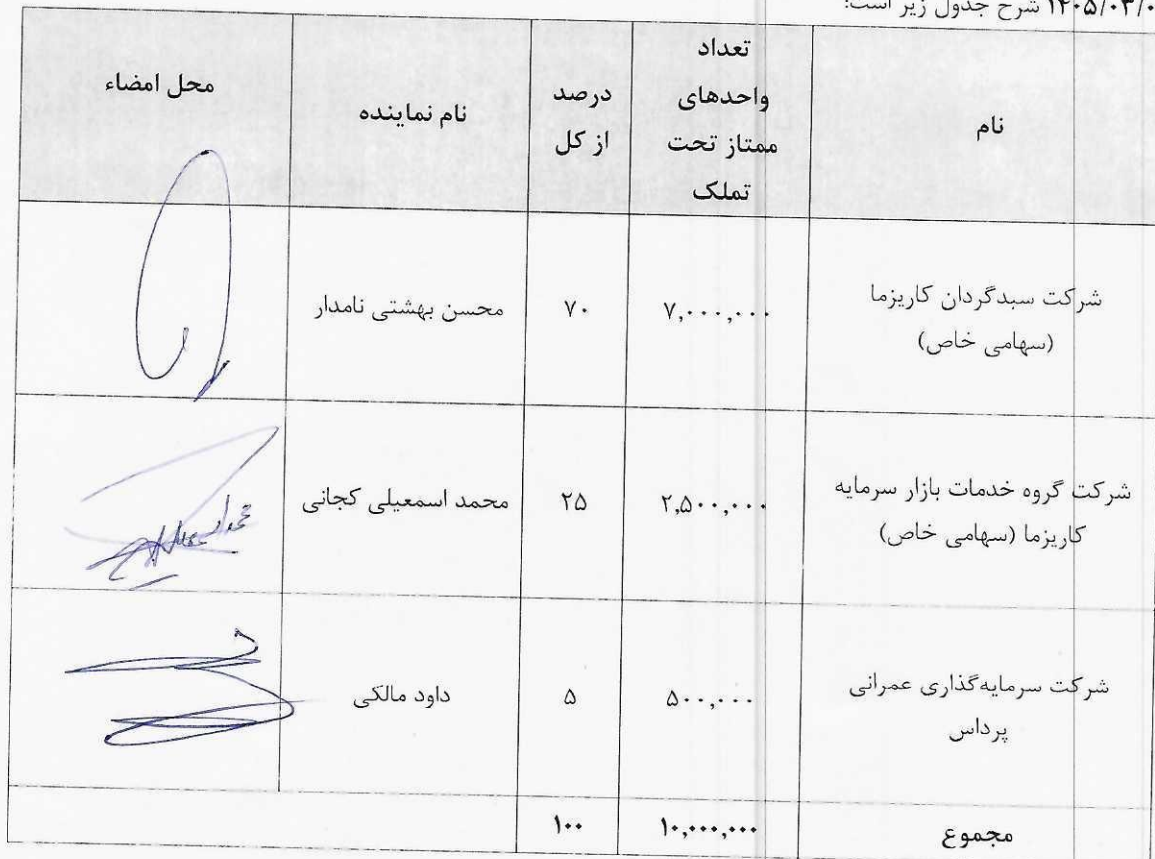 ۱۴۰۵/۰۳/۰ شرح جدول زیر است:
نام
تعداد
واحدهای
ممتاز تحت
تملک
درصد
از کل
نام نماینده
محل امضاء
شرکت سبدگردان کاریزما
(سهامی خاص)
۷,۰۰۰,۰۰۰
۷۰
محسن بهشتی نامدار
شرکت گروه خدمات بازار سرمایه
کاریزما (سهامی خاص)
۲,۵۰۰,۰۰۰
۲۵
محمد اسمعیلی کجانی
شرکت سرمایه‌گذاری عمرانی
پرداس
۵۰۰,۰۰۰
۵
داود مالکی
مجموع
۱۰,۰۰۰,۰۰۰
۱۰۰